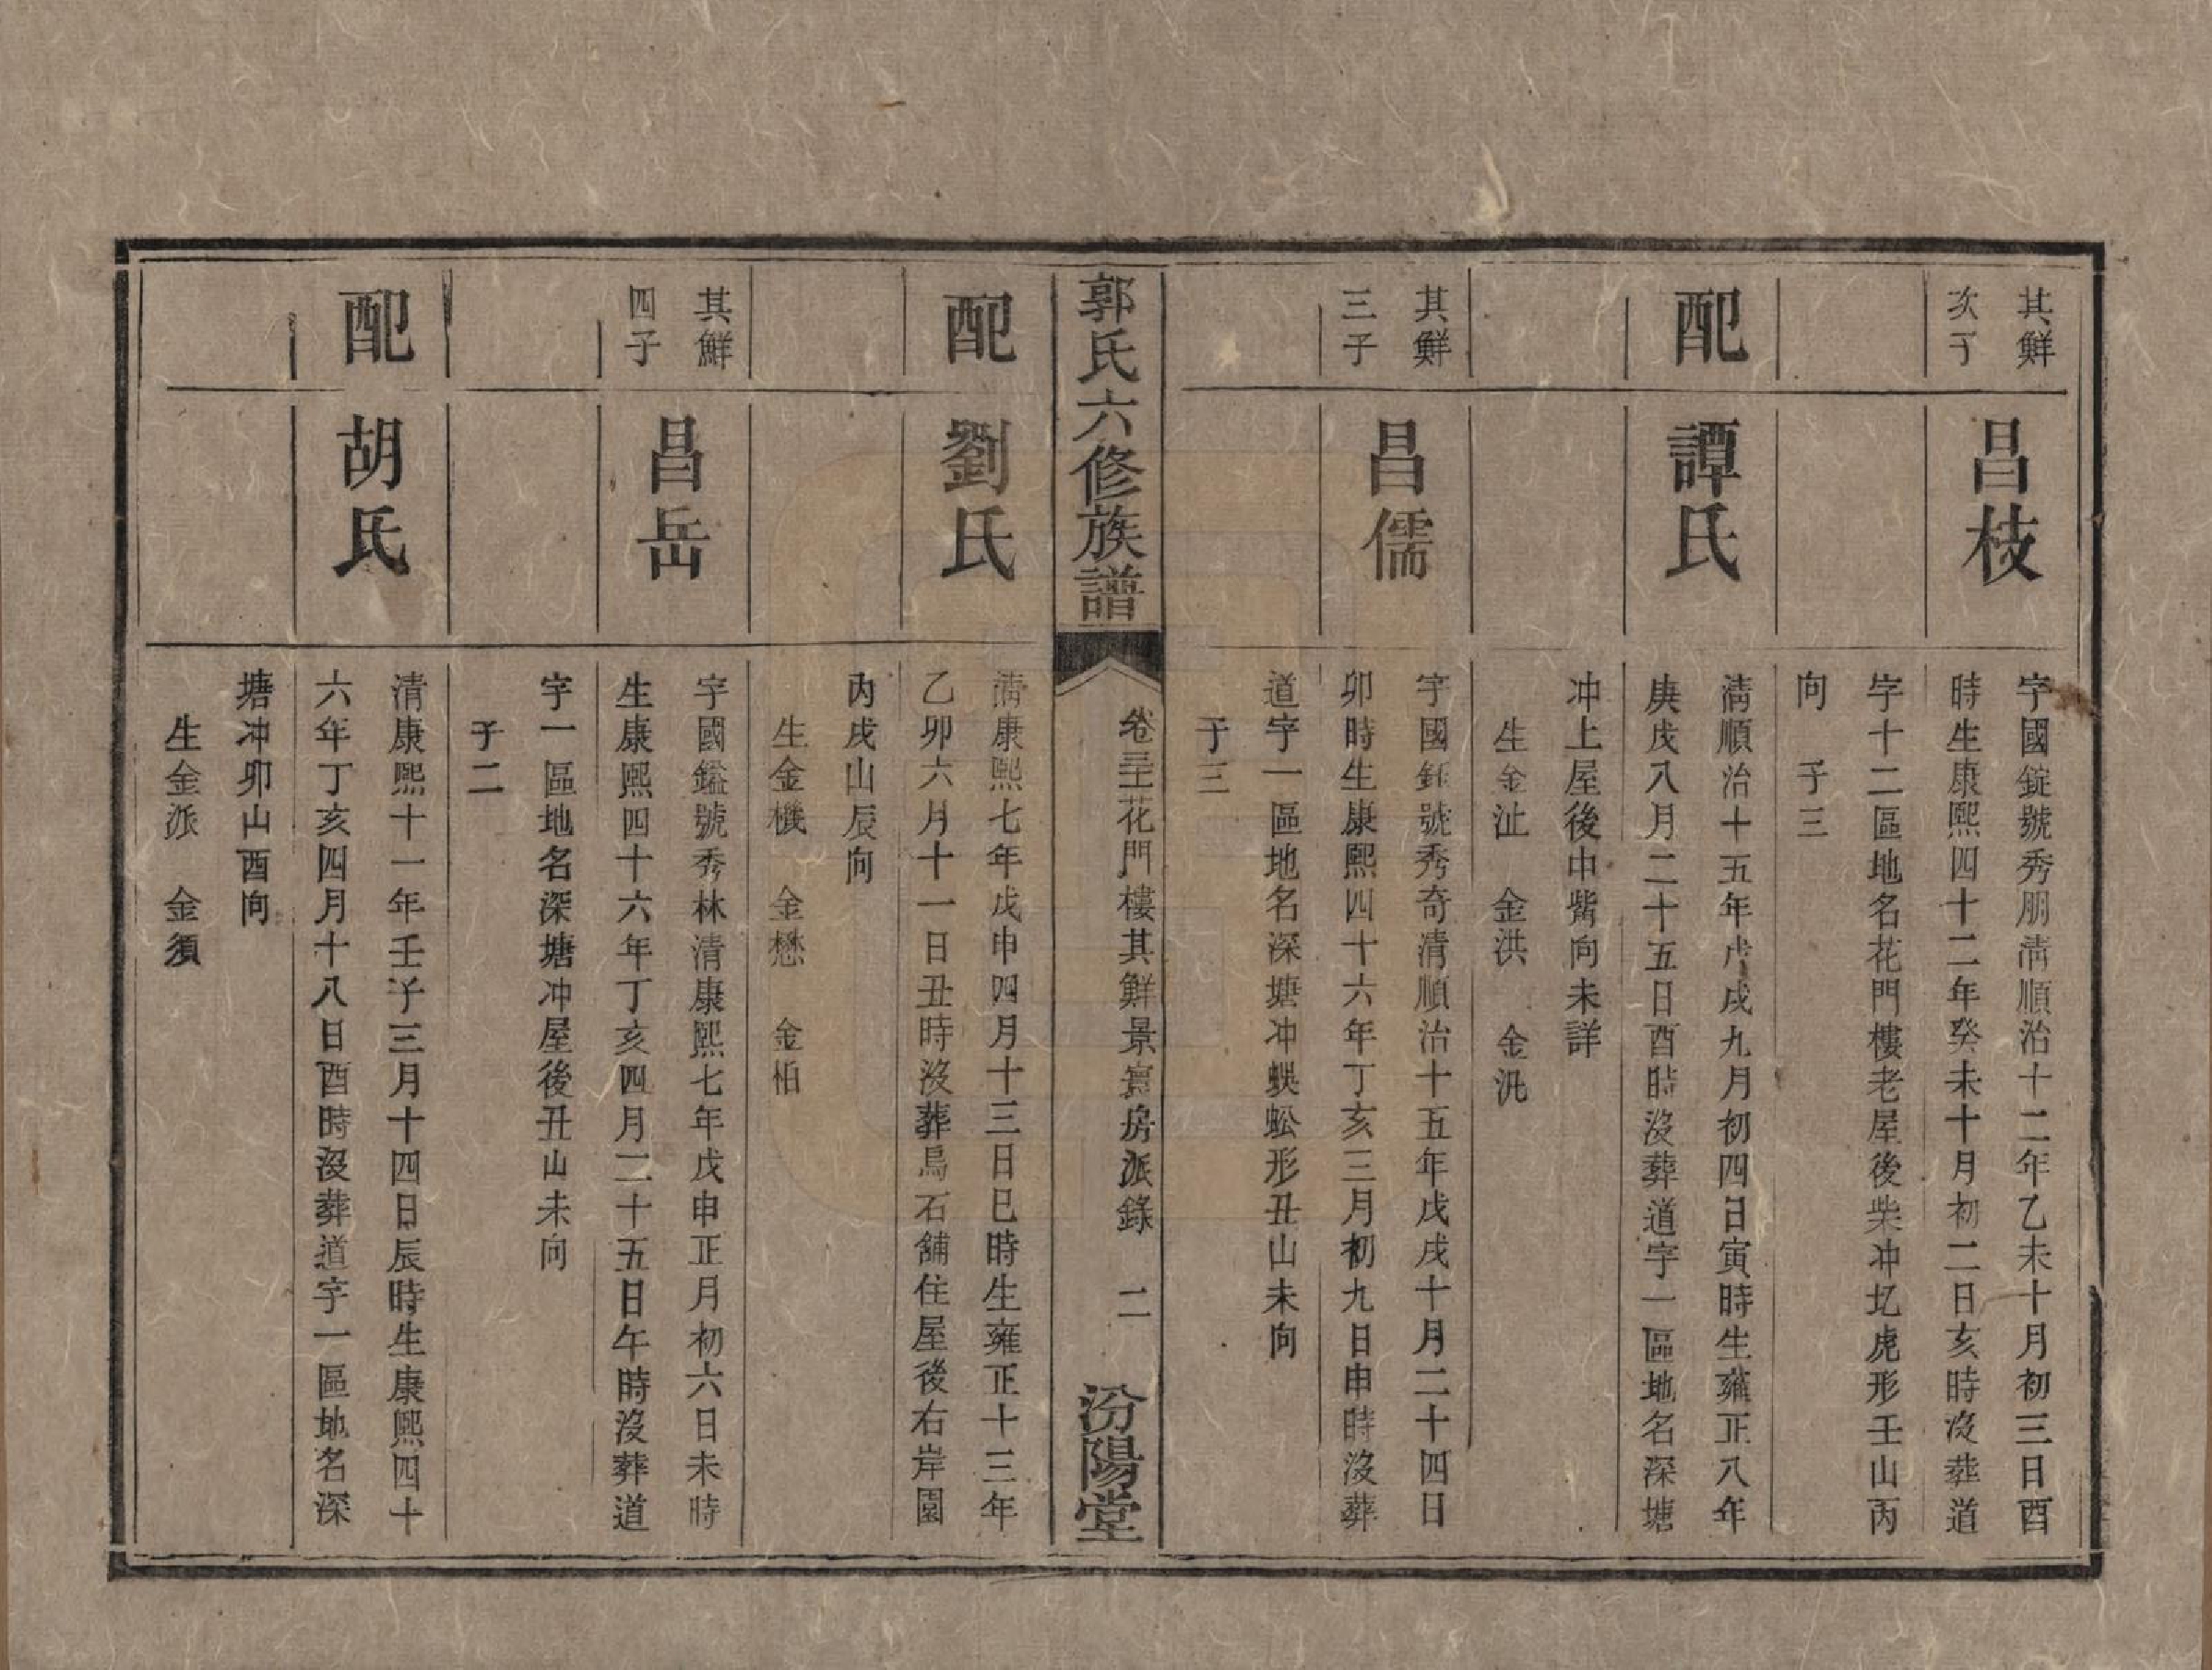 其鮮
次子
昌枝
字國錠號秀朋清順治十二年乙未十月初三日酉
時生康熙四十二年癸未十月初二日亥時沒葬道
字十二區地名花門樓老屋後柴冲圠虎形壬山丙
向　子三
配
譚氏
清順治十五年戊戌九月初四日寅時生雍正八年
庚戌八月二十五日酉時沒葬道字一區地名深塘
冲上屋後中嘴向未詳
生金沚　金洪　金汎
其鮮
三子
昌儒
字國鉅號秀奇清順治十五年戊戌十月二十四日
卯時生康熙四十六年丁亥三月初九日申時沒葬
道字一區地名深塘冲蜈蚣形丑山未向
子三
郭氏六修族譜
卷三十花門樓其鮮景寰房派錄　二
汾陽堂
配
劉氏
清康熙七年戊申四月十三日巳時生雍正十三年
乙卯六月十一日丑時沒葬烏石舖住屋後右岸園
內戌山辰向
生金機　金懋　金柏
其鮮
四子
昌岳
字國鎰號秀林清康熙七年戊申正月初六日未時
生康熙四十六年丁亥四月二十五日午時沒葬道
字一區地名深塘冲屋後丑山未向
子二
配
胡氏
清康熙十一年壬子三月十四日辰時生康熙四十
六年丁亥四月十八日酉時沒葬道字一區地名深
塘冲卯山酉向
生金派　金須